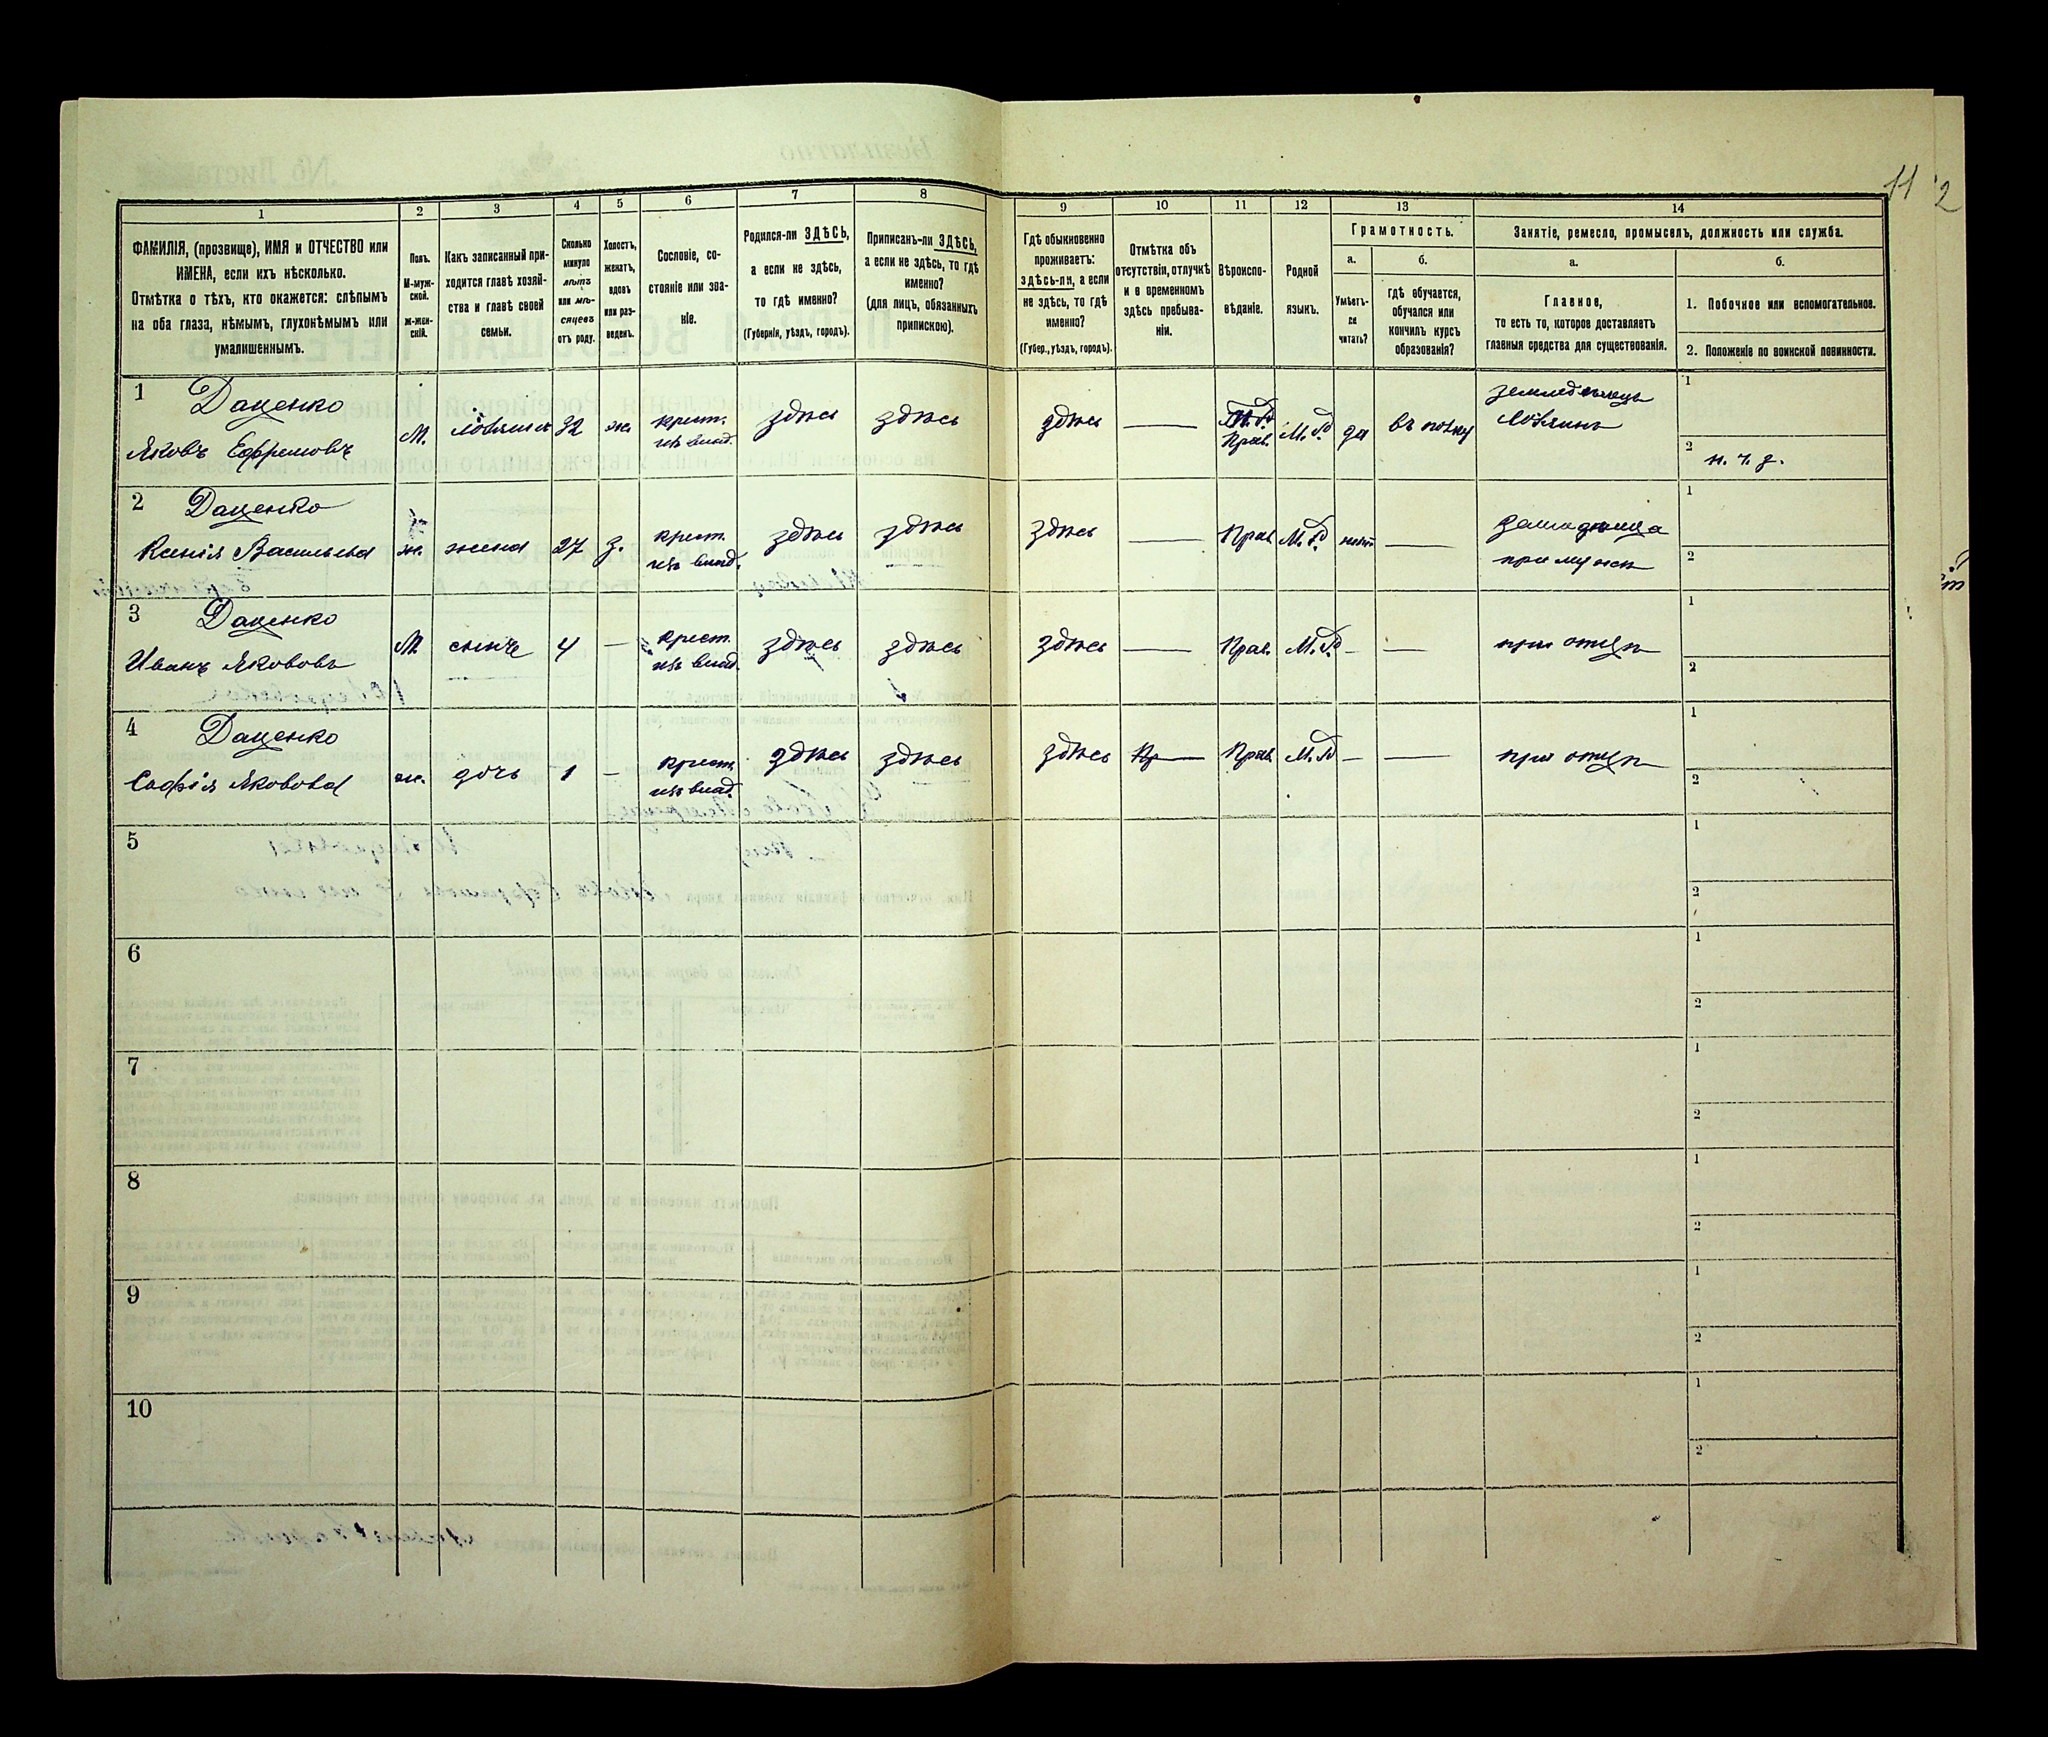 11 2
1
2
3
4
5
6
7
8
9
10
11
12
13
14
ФАМИЛІЯ, (прозвище), ИМЯ и ОТЧЕСТВО или
ИМЕНА, если ихъ нѣсколько.
Отмѣтка о тѣхъ, кто окажется: слѣпымъ
на оба глаза, нѣмымъ, глухонѣмымъ или
умалишеннымъ.
Полъ.
М-муж-
ской.
ж-жен-
скій.
Какъ записанный при-
ходится главѣ хозяй-
ства и главѣ своей
семьи.
Сколько
минуло
лѣтъ
или мѣ-
сяцевъ
отъ роду.
Холостъ,
женатъ,
вдовъ
или раз-
веденъ.
Сословіе, со-
стояніе или зва-
ніе.
Родился-ли ЗДѢСЬ,
а если не здѣсь,
то гдѣ именно?
(Губернія, уѣздъ, городъ).
Приписанъ-ли ЗДѢСЬ,
а если не здѣсь, то гдѣ
именно?
(для лицъ, обязанныхъ
припискою).
Гдѣ обыкновенно
проживаетъ:
здѣсь-ли, а если
не здѣсь, то гдѣ
именно?
(Губер., уѣздъ, городъ).
Отмѣтка объ
отсутствіи, отлучкѣ
и о временномъ
здѣсь пребыва-
ніи.
Вѣроиспо-
вѣданіе.
Родной
языкъ.
Грамотность.
а.
Умѣетъ-
ли
читать?
б.
гдѣ обучается,
обучался или
кончилъ курсъ
образованія?
Занятіе, ремесло, промыселъ, должность или служба.
а.
Главное,
то есть то, которое доставляетъ
главныя средства для существованія.
б.
1. Побочное или вспомогательное.
2. Положеніе по воинской повинности.
1 Даценко
Яковъ Ефремовъ
М.
32
ж.
крест.
изъ влад.
здѣсь
здѣсь
здѣсь
—
Прав.
М. Р.
да
въ полку
земледѣлецъ
1
2 н. ч. з.
2 Даценко
Ксенія Васильева
ж.
жена
27
з.
крест.
изъ влад.
здѣсь
здѣсь
здѣсь
—
Прав
М. Р.
нѣтъ
—
при мужѣ
1
2
3 Даценко
Иванъ Якововъ
М.
сынъ
4
—
крест.
изъ влад.
здѣсь
здѣсь
здѣсь
—
Прав.
М. Р.
—
—
при отцѣ
1
2
4 Даценко
Софія Яковова
ж.
дочь
1
—
крест.
изъ влад.
здѣсь
здѣсь
здѣсь
—
Прав
М. Р.
—
—
при отцѣ
1
2
5
1
2
6
1
2
7
1
2
8
1
2
9
1
2
10
1
2